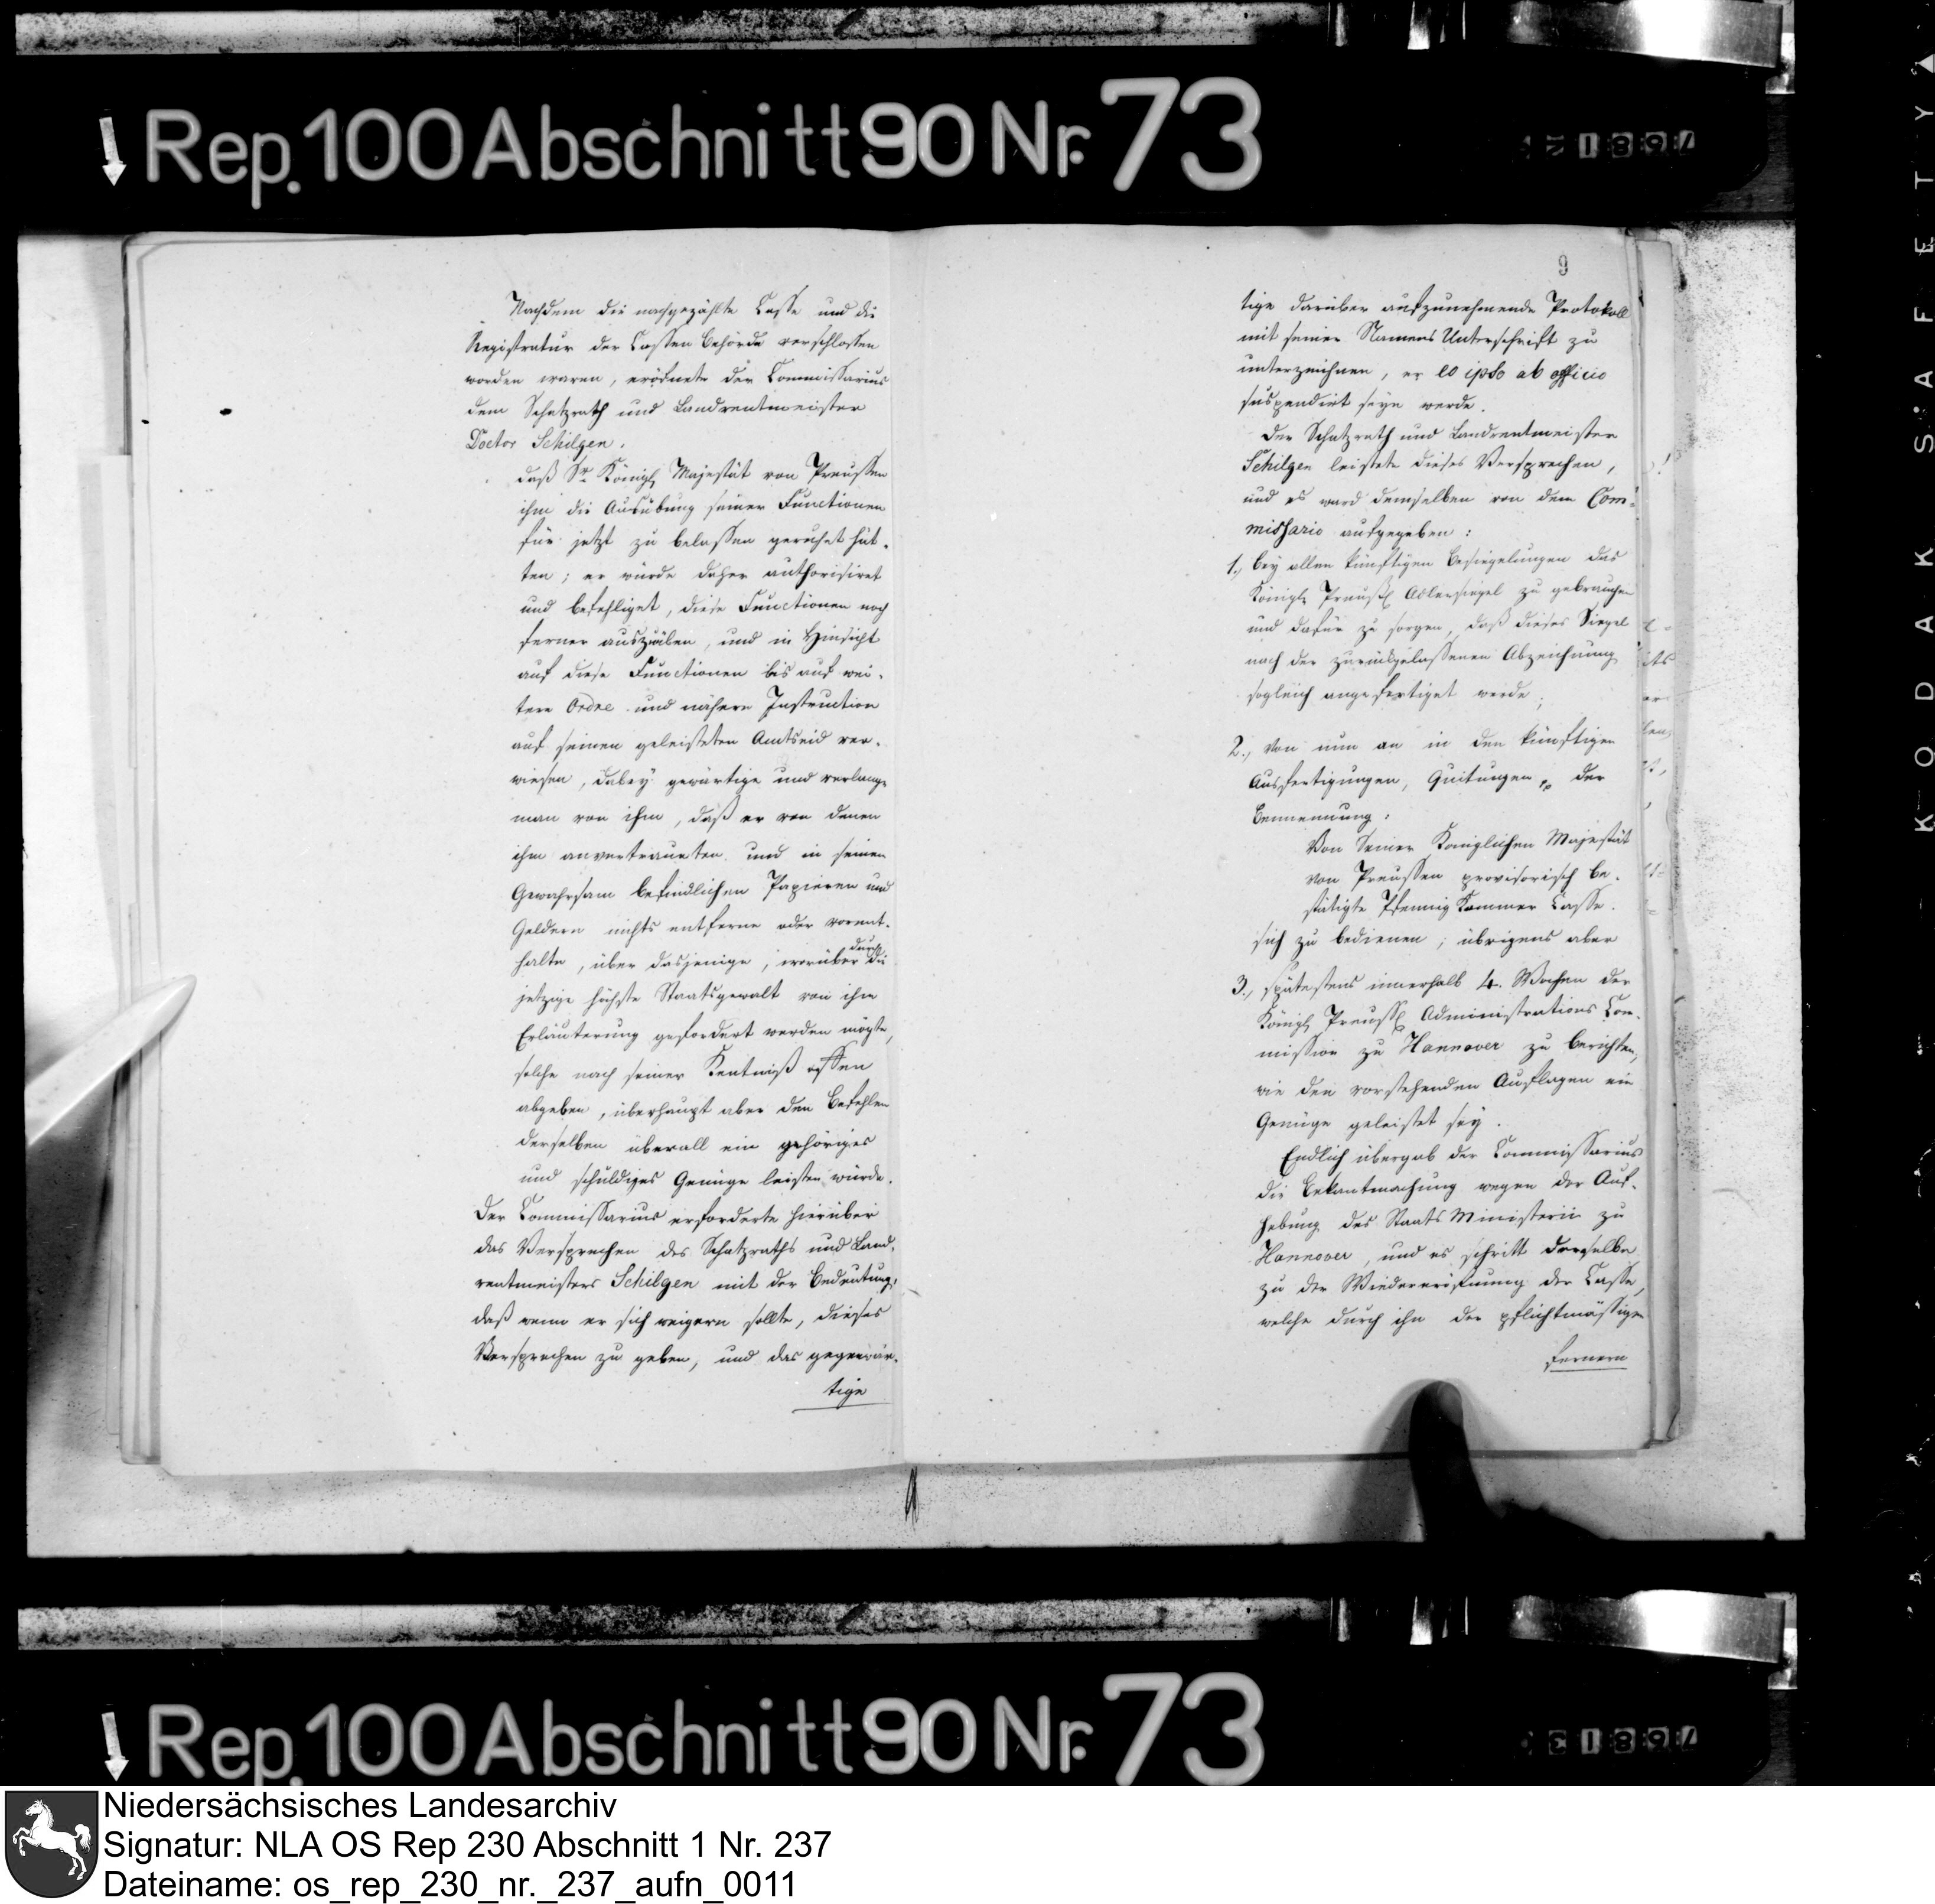 Rep. 100 Abschnitt 90 Nr. 73
Nachdem die nachgezählte Casse und die
Registratur der Cassen Behörde verschlossen
worden waren, eröfnete der Commissarius
dem Schatzrath und Landrentmeister
Doctor Schilgen.
daß Sr Königl Majestät von Preussen
ihm die Ausübung seiner Functionen
für jetzt zu belassen geruhet hät-
ten; er würde daher authorisiret
und befehliget, diese Functionen noch
ferner auszuüben, und in Hinsicht
auf diese Functionen bis auf wei-
tere Ordre und nähere Instruction
auf seinen geleisteten Amtseid ver-
wiesen, dabey gewärtige und verlange
man von ihm, daß er von denen
ihm anvertraueten und in seinem
Gewahrsam befindlichen Papieren und
Geldern nichts entferne oder vorent-
halte, über dasjenige, worüber durch die
jetzige höchste Staatsgewalt von ihm
Erläuterung gefordert werden mögte,
solche nach seiner Kentniß offen
abgeben, überhaupt aber den Befehlen
derselben überall ein gehöriges
und schuldiges Genüge leisten würde.
Der Commissarius erforderte hierüber
das Versprechen des Schatzraths und Land-
rentmeisters Schilgen mit der Bedeutung,
daß wenn er sich weigern sollte, dieses
Versprechen zu geben, und das gegenwär-
tige
9
tige darüber aufzunehmende Protokoll
mit seiner Namens Unterschrift zu
unterzeichnen, er eo ipso ab officio
suspendirt seyn werde.
Der Schatzrath und Landrentmeister
Schilgen leistete dieses Versprechen,
und es ward demselben von dem Com-
missario aufgegeben:
1., bey allen künftigen Besiegelungen das
Königl Preuß Adlersiegel zu gebrauchen
und dafür zu sorgen, daß dieses Siegel
nach der zurückgelassenen Abzeichnung
sogleich angefertiget werde;
2., Von nun an in den künftigen
Ausfertigungen, Quitungen pp der
Bennennung:
Von Seiner Königlichen Majestät
von Preussen provisorisch be-
stätigte Pfennig Kammer Casse.
sich zu bedienen; übrigens aber
3., spätestens innerhalb 4. Wochen der
Königl Preuß Administrations Com-
mission zu Hannover zu berichten,
wie den vorstehenden Auflagen ein
Genüge geleistet sey.
Endlich übergab der Commissarius
die Bekantmachung wegen der Auf-
hebung des Staats Ministerii zu
Hannover, und es schritt derselbe
zu der Wiedereröfnung der Casse,
welche durch ihn der pflichtmässigen
fernern
Rep. 100 Abschnitt 90 Nr. 73
KODAK SAFETY
Niedersächsisches Landesarchiv
Signatur: NLA OS Rep 230 Abschnitt 1 Nr. 237
Dateiname: os_rep_230_nr._237_aufn_0011